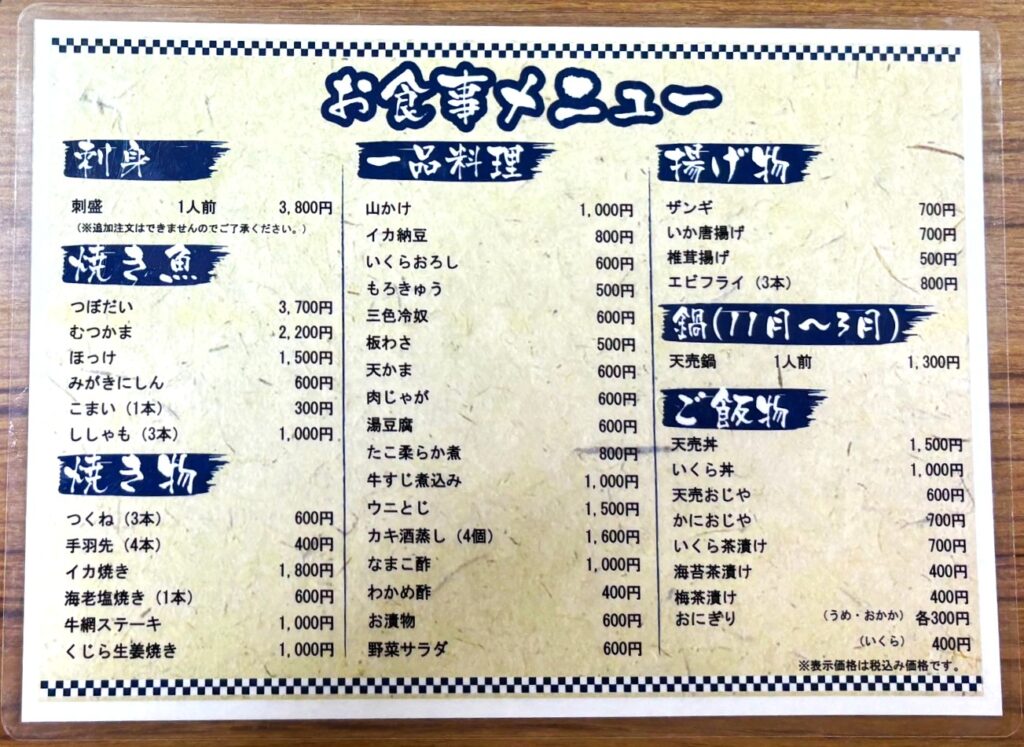 お食事メニュー
刺身
刺盛 1人前 3,800円
(※追加注文はできませんのでご了承ください。)
焼き魚
つぼだい 3,700円
むつかま 2,200円
ほっけ 1,500円
みがきにしん 600円
こまい(1本) 300円
ししゃも(3本) 1,000円
焼き物
つくね(3本) 600円
手羽先(4本) 400円
イカ焼き 1,800円
海老塩焼き(1本) 600円
牛網ステーキ 1,000円
くじら生姜焼き 1,000円
一品料理
山かけ 1,000円
イカ納豆 800円
いくらおろし 600円
もろきゅう 500円
三色冷奴 600円
板わさ 500円
天かま 600円
肉じゃが 600円
湯豆腐 600円
たこ柔らか煮 800円
牛すじ煮込み 1,000円
ウニとじ 1,500円
カキ酒蒸し(4個) 1,600円
なまこ酢 1,000円
わかめ酢 400円
お漬物 600円
野菜サラダ 600円
揚げ物
ザンギ 700円
いか唐揚げ 700円
椎茸揚げ 500円
エビフライ(3本) 800円
鍋(11月~3月)
天売鍋 1人前 1,300円
ご飯物
天売丼 1,500円
いくら丼 1,000円
天売おじや 600円
かにおじや 700円
いくら茶漬け 700円
海苔茶漬け 400円
梅茶漬け 400円
おにぎり (うめ・おかか) 各300円
(いくら) 400円
※表示価格は税込み価格です。